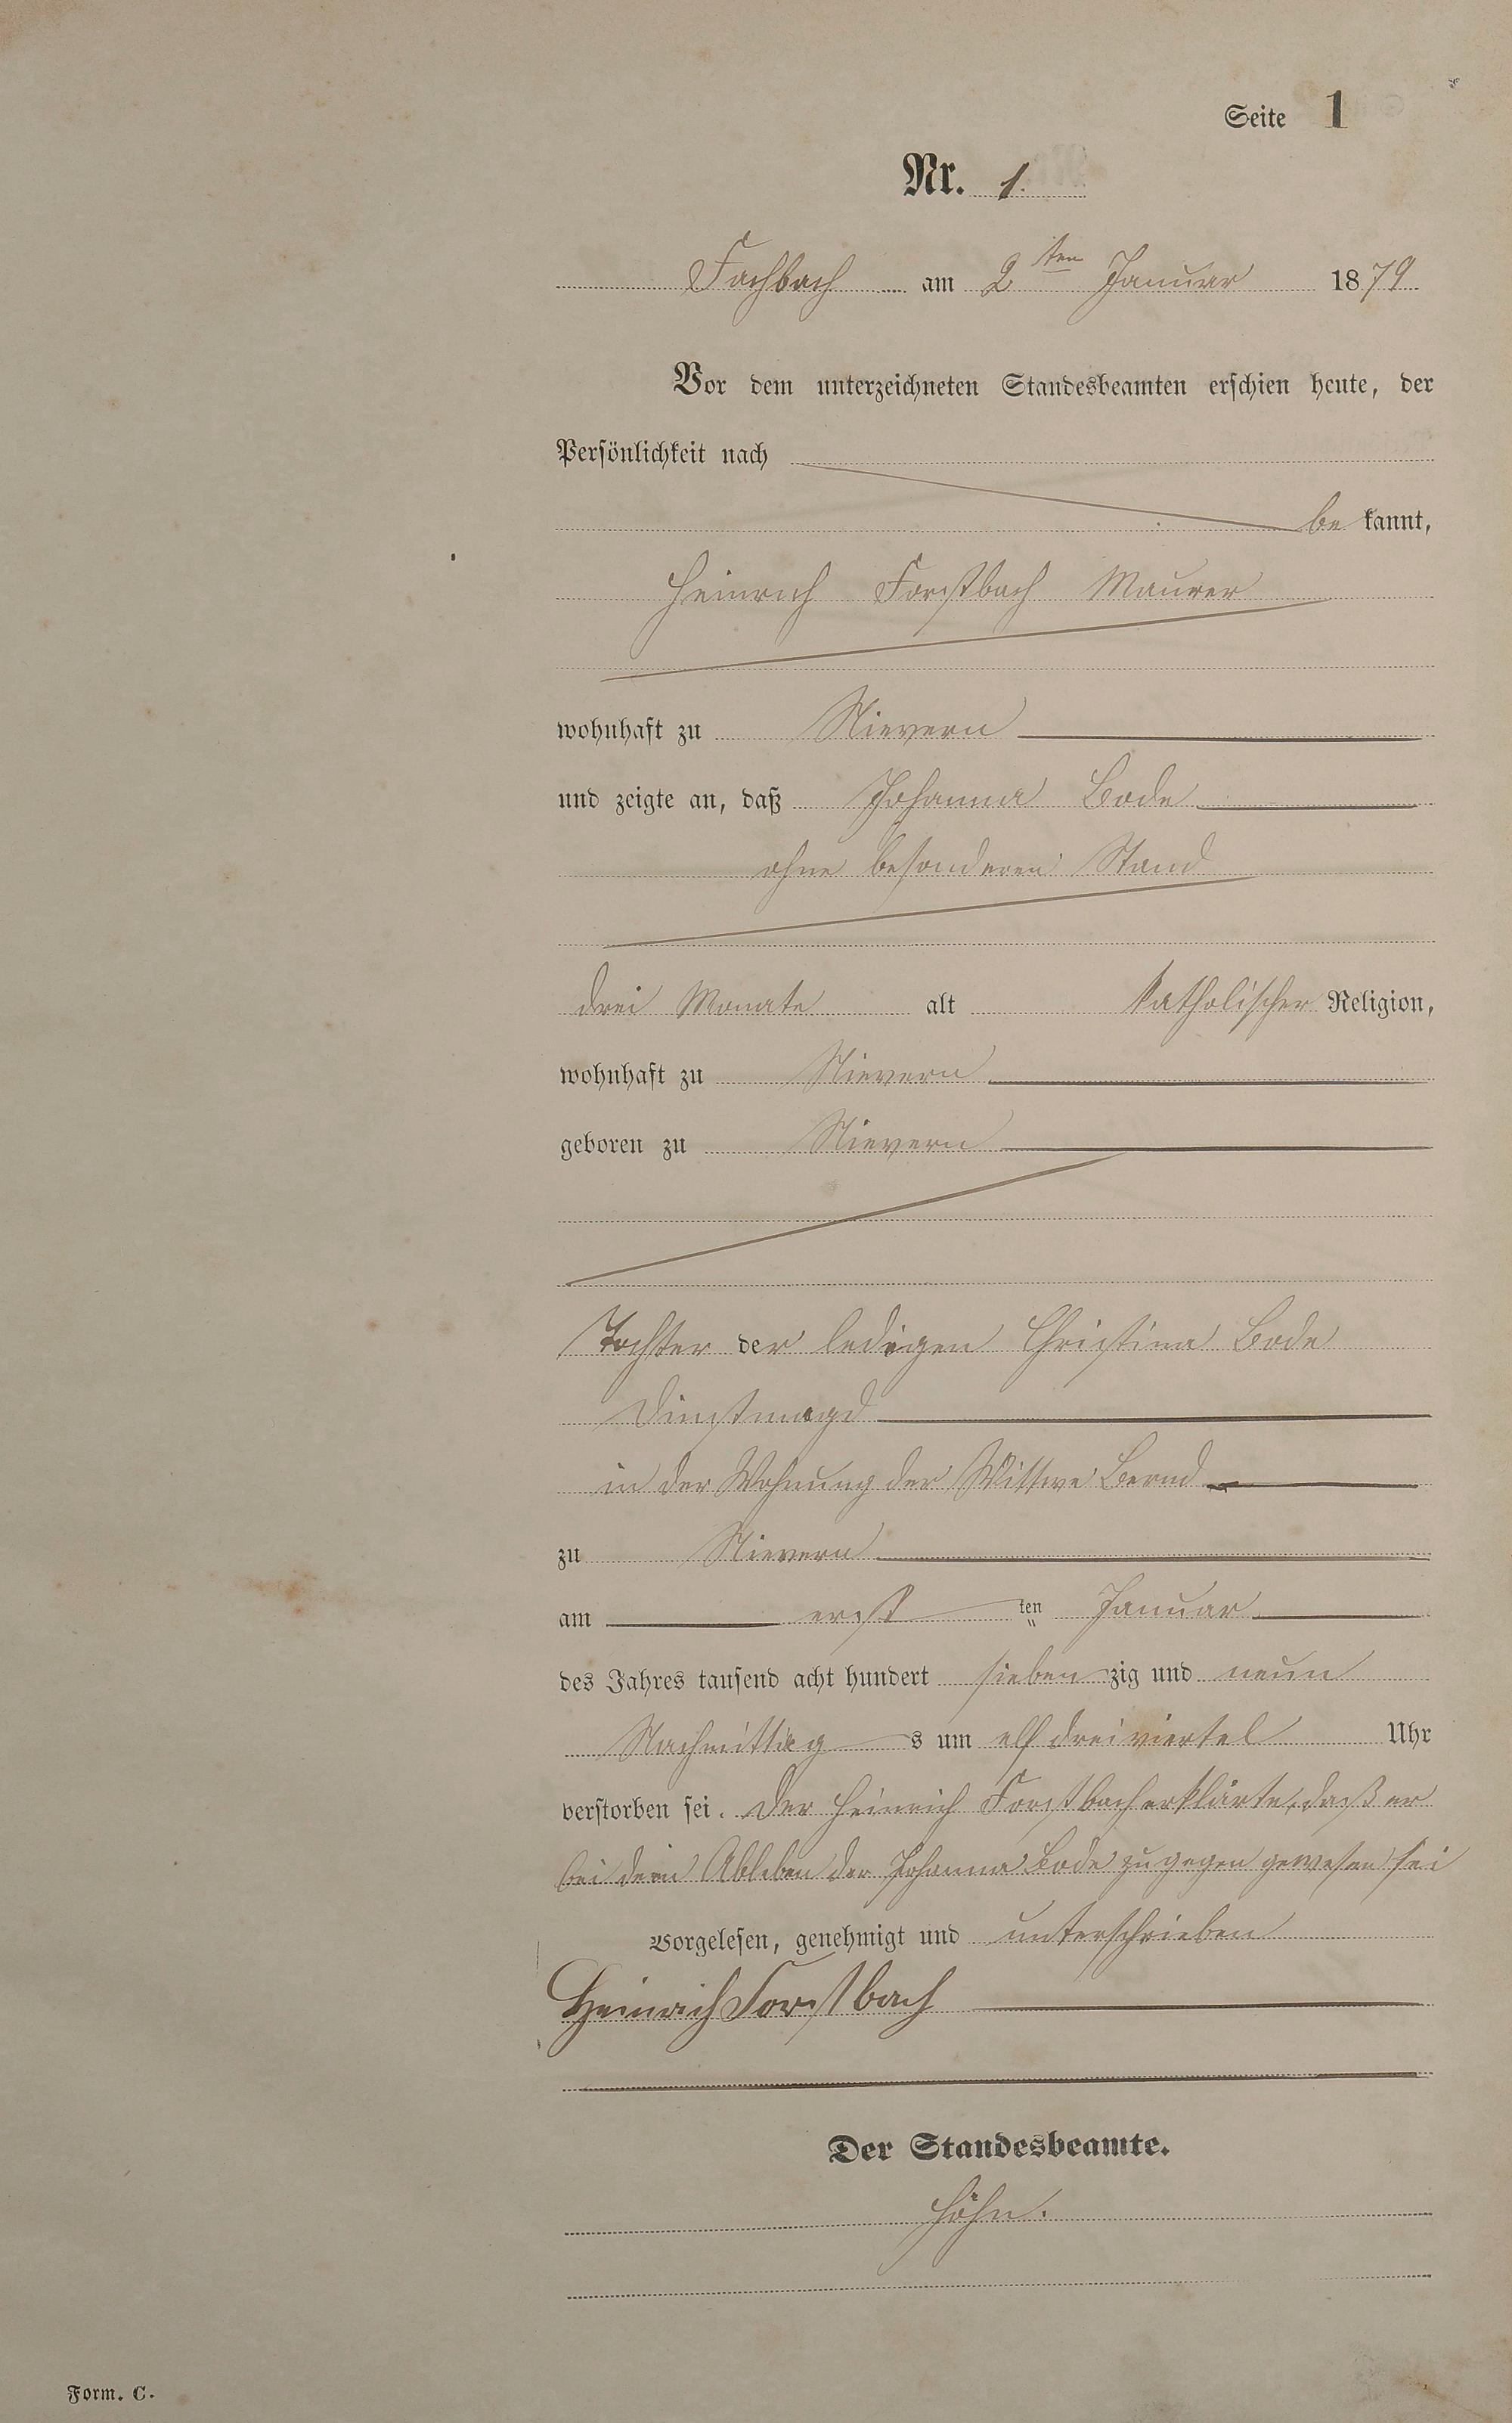 Seite 1
Nr. 1.
Fachbach am 2ten Januar 1879
Vor dem unterzeichneten Standesbeamten erschien heute, der
Persönlichkeit nach
be kannt,
Heinrich Forstbach Maurer
wohnhaft zu Nievern
und zeigte an, daß Johanna Bode
ohne besonderen Stand
drei Monate alt katholischer Religion,
wohnhaft zu Nievern
geboren zu Nievern
Tochter der ledigen Christina Bode
Dinstmagd
in der Wohnung der Wittwe Bernd
zu Nievern
am erst ten Januar
des Jahres tausend acht hundert sieben zig und neun
Nachmittag s um elf dreiviertel Uhr
verstorben sei. Der Heinrich Forstbach erklärte, daß er
bei dem Ableben der Johanna Bode zugegen gewesen sei
Vorgelesen, genehmigt und unterschrieben
Heinrich Forstbach
Der Standesbeamte.
Höhn.
Form. C.